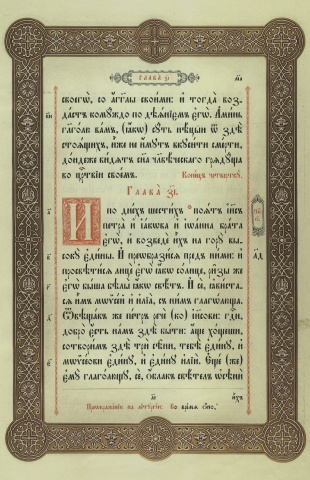 ГЛАВА З҃І
своегѡ̀, со а҆́гг҃лы свои́ми: и҆ тогда̀ возда́стъ комꙋ́ждо по дѣѧ́ніємъ є҆гѡ̀. А҆ми́нь
гл҃го́лю ва́мъ, (ꙗ҆́кѡ) сꙋ́ть нѣ́цыи ѿ здѣ̀
стоѧ́щихъ, и҆̀же не и҆́мꙋтъ вкꙋси́ти сме́рти,
до́ндеже ви́дѧтъ сн҃а чл҃вѣ́ческаго грѧдꙋ́ща
во црⷭ҇твіи свое́мъ. Коне́цъ четверткꙋ̀.
ГЛАВА̀ З҃І.
И҆ по дне́хъ шести́хъ поѧ́тъ і҆и҃съ
петра̀ и҆ і҆а́кѡва и҆ і҆ѡа́нна бра́та
є҆гѡ̀, и҆ возведѐ и҆̀хъ на горꙋ̀ высо́кꙋ є҆ди́ны. И҆ преѡбрази́сѧ пред̾ ни́ми: и҆
просвѣти́сѧ лицѐ є҆гѡ̀ ꙗ҆́кѡ со́лнце, ри̑зы же
є҆гѡ̀ бы́ша бѣлы̀ ꙗ҆́кѡ свѣ́тъ. И҆ сѐ, ꙗ҆ви́стасѧ и҆̀мъ мѡѷсе́й и҆ и҆лїа̀, съ ни́мъ глагѡ́люща.
Ѿвѣща́въ же пе́тръ речѐ (ко) і҆и҃сови: гдⷭ҇и,
добро̀ є҆́сть на́мъ здѣ̀ бы́ти: а҆́ще хо́щеши,
сотвори́мъ здѣ̀ трѝ сѣ̑ни, тебѣ̀ є҆ди́нꙋ, и҆
мѡѷсе́ови є҆ди́нꙋ, и҆ є҆ди́нꙋ и҆лїѝ. Е҆щѐ (же)
є҆мꙋ̀ глаго́лющꙋ, сѐ, ѻ҆́блакъ свѣ́телъ ѡ҆сѣнѝ
и҆̀хъ